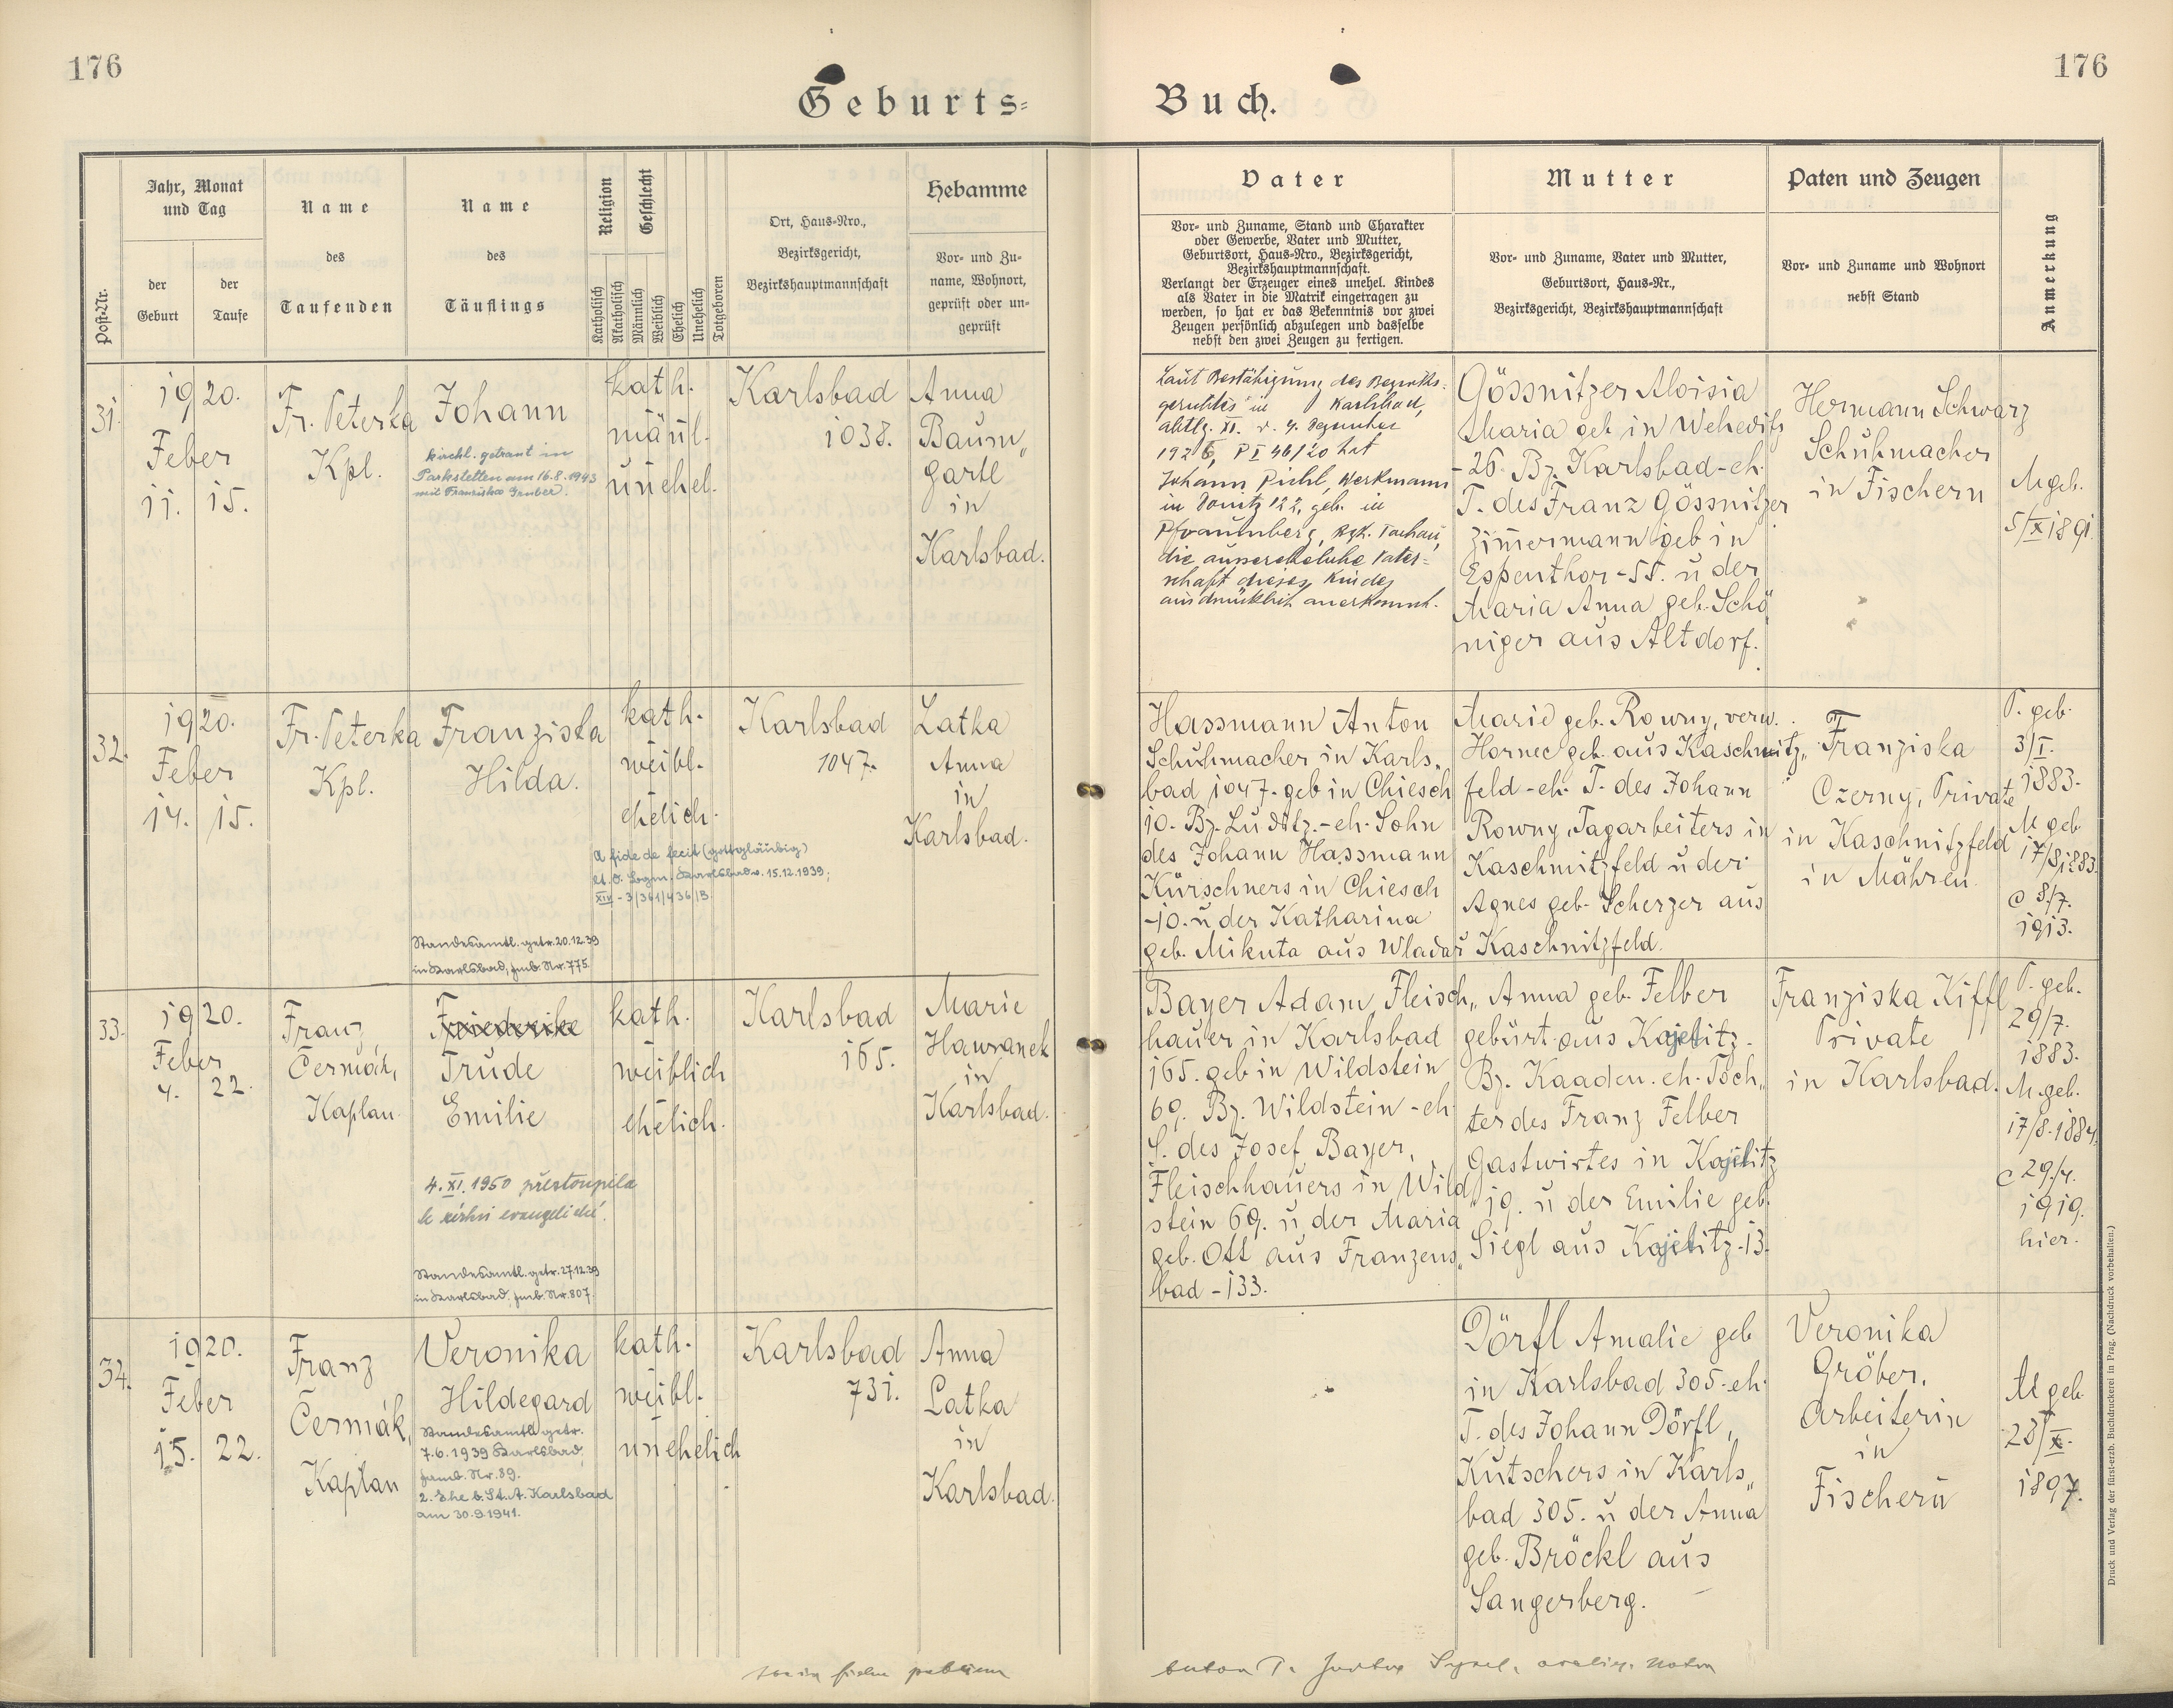 176
176
Geburts=
Buch.
Post-Nr.
Jahr, Monat
und Tag
der
Geburt
der
Taufe
Name
des
Taufenden
Name
des
Täuflings
Religion
Geschlecht
Katholisch
Akatholisch
Männlich
Weiblich
Ehelich
Unehelich
Totgeboren
Ort, Haus-Nro.,
Bezirksgericht,
Bezirkshauptmannschaft
Hebamme
Vor- und Zu-
name, Wohnort,
geprüft oder un-
geprüft
Vater
Vor- und Zuname, Stand und Charakter
oder Gewerbe, Vater und Mutter,
Geburtsort, Haus-Nro., Bezirksgericht,
Bezirkshauptmannschaft.
Verlangt der Erzeuger eines unehel. Kindes
als Vater in die Matrik eingetragen zu
werden, so hat er das Bekenntnis vor zwei
Zeugen persönlich abzulegen und dasselbe
nebst den zwei Zeugen zu fertigen.
Mutter
Vor- und Zuname, Vater und Mutter,
Geburtsort, Haus-Nr.,
Bezirksgericht, Bezirkshauptmannschaft
Paten und Zeugen
Vor- und Zuname und Wohnort
nebst Stand
Anmerkung
31.
1920.
Feber
11. 15.
Fr. Peterka
Kpl.
Johann
kirchl. getraut in
Parkstetten am 16.8.1943
mit Franziska Gruber.
kath.
männl.
unehel.
Karlsbad
1038.
Anna
Baum„
gartl
in
Karlsbad.
Laut Bestätigung des Bezirks-
gerichtes in Karlsbad,
abtlg. XI. v. 4. Dezember
1926, P I 46/20 hat
Johann Pichl, Werkmann
in Donitz 122, geb. in
Pfraumberg, Bzk. Tachau,
die aussereheliche Vater-
schaft dieses Kindes
ausdrücklich anerkannt.
Gössnitzer Aloisia
Maria geb. in Weheditz
-26. Bz. Karlsbad-eh.
T. des Franz Gössnitzer
Zimmermann geb in
Espenthor-55. u der
Maria Anna geb. Schö„
niger aus Altdorf.
Hermann Schwarz
Schuhmacher
in Fischern
M geb.
5/X 1891.
32.
1920.
Feber
14. 15.
Fr. Peterka
Kpl.
Franziska
Hilda.
Standesamtl. getr. 20.12.39
in Karlsbad, fmb. Nr. 775.
kath.
weibl.
ehelich.
A fide defecit (gottgläubig)
lt. O. Bzgm. Karlsbad v. 15.12.1939;
XIV - 3/361/436/B.
Karlsbad
1047.
Latka
Anna
in
Karlsbad.
Hassmann Anton
Schuhmacher in Karls„
bad 1047. geb in Chiesch
10. Bz. Luditz. - eh. Sohn
des Johann Hassmann
Kürschners in Chiesch
-10. u der Katharina
geb. Mikuta aus Wladar
Marie geb. Rowny, verw.
Hornec geb. aus Kaschnitz„
feld - eh. T. des Johann
Rowny, Tagarbeiters in
Kaschnitzfeld u der
Agnes geb. Scherzer aus
Kaschnitzfeld.
Franziska
Czerny, Private
in Kaschnitzfeld
in Mähren.
P. geb.
3/I.
1883.
M geb
17/8 1883.
c 8/7.
1913.
33.
1920.
Feber
4. 22.
Franz
Čermák,
Kaplan.
Friederike
Trude
Emilie
4. XI. 1950 přestoupila
k církvi evangelické.
Standesamtl. getr. 27.12.39
in Karlsbad, fmb. Nr. 807.
kath.
weiblich
ehelich.
Karlsbad
165.
Marie
Hawranek
in
Karlsbad.
Bayer Adam Fleisch„
hauer in Karlsbad
165. geb in Wildstein
69. Bz. Wildstein - eh
S. des Josef Bayer,
Fleischhauers in Wild„
stein 69. u der Maria
geb. Ott aus Franzens„
bad - 133.
Anna geb. Felber
gebürt. aus Kojetitz -
Bz. Kaaden. eh. Toch„
ter des Franz Felber
Gastwirtes in Kojetitz
19. u der Emilie geb.
Siegl aus Kojetitz - 13.
Franziska Kiffl
Private
in Karlsbad.
P. geb.
29/7.
1883.
M. geb.
17/8. 1884.
c 29/4.
1919.
hier.
34.
1920.
Feber
15. 22.
Franz
Čermák,
Kaplan
Veronika
Hildegard
Standesamtl. getr.
7.6.1939 Karlsbad,
famb. Nr. 89.
2. Ehe b. St. A. Karlsbad
am 30.9.1941.
kath.
weibl.
unehelich
Karlsbad
731.
Anna
Latka
in
Karlsbad.
Dörfl Amalie geb
in Karlsbad 305-eh.
T. des Johann Dörfl,
Kutschers in Karls„
bad 305. u der Anna
geb. Bröckl aus
Sangerberg.
Veronika
Gröber,
Arbeiterin
in
Fischern
M geb
28/X.
1897.
Druck und Verlag der fürst-erzb. Buchdruckerei in Prag. (Nachdruck vorbehalten.)